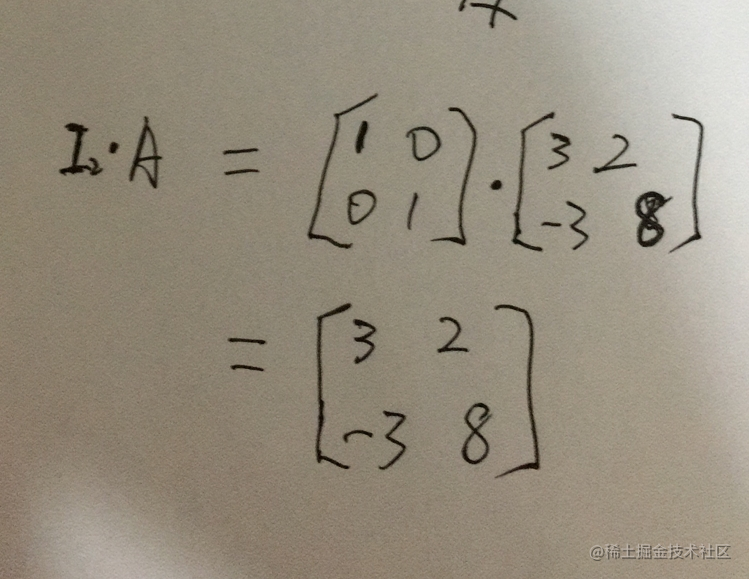 I₂·A = [1 0; 0 1] · [3 2; -3 8]
= [3 2; -3 8]
@稀土掘金技术社区